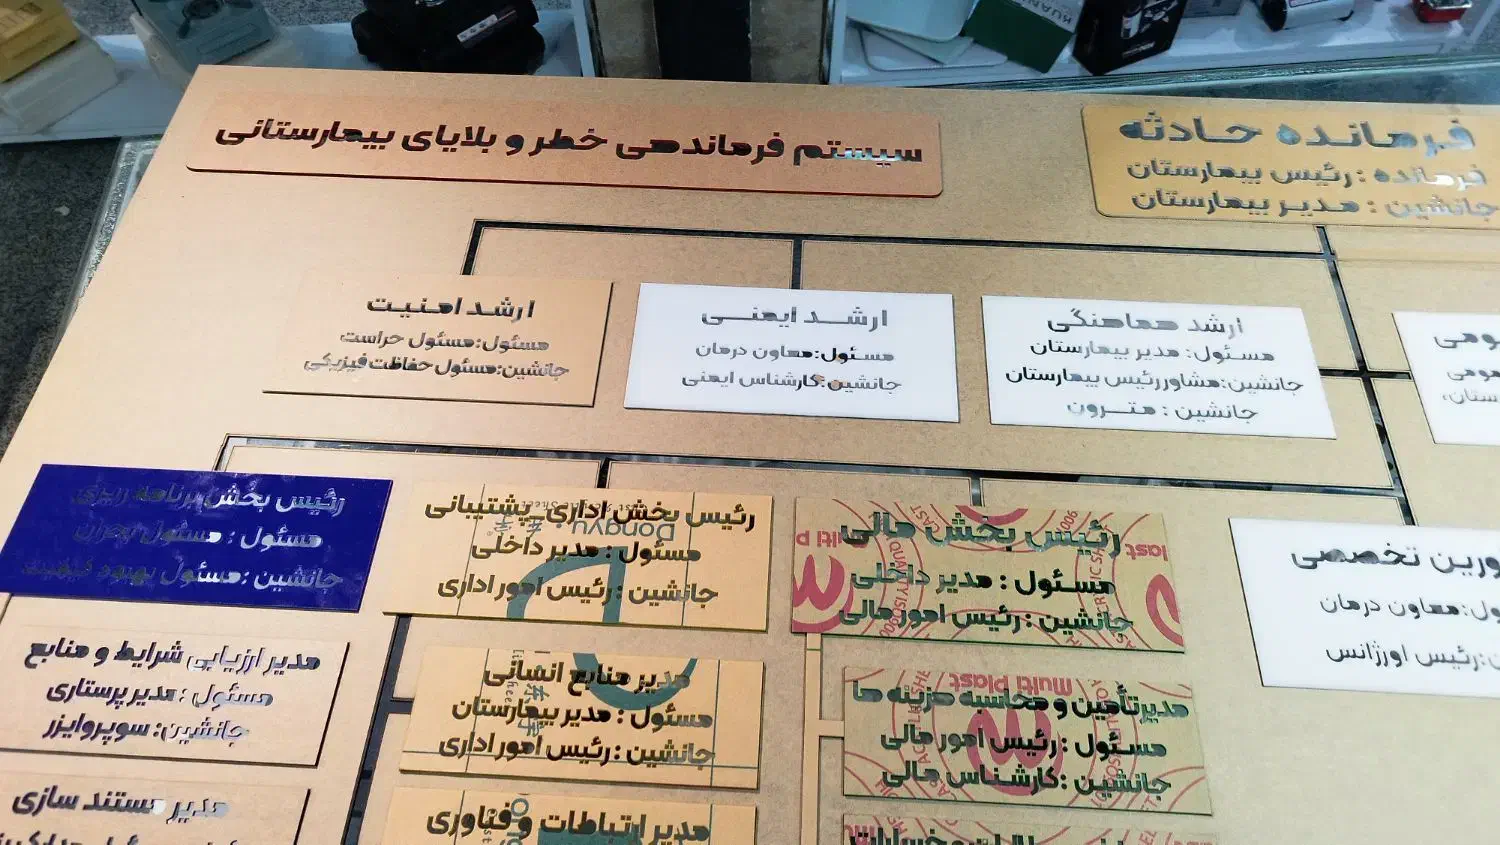 سیستم فرماندهی خطر و بلایای بیمارستانی
فرمانده حادثه
فرمانده : رئیس بیمارستان
جانشین : مدیر بیمارستان
ارشد امنیت
مسئول:مسئول حراست
جانشین:مسئول حفاظت فیزیکی
ارشد ایمنی
مسئول:معاون درمان
جانشین:کارشناس ایمنی
ارشد هماهنگی
مسئول: مدیر بیمارستان
جانشین:مشاور رئیس بیمارستان
جانشین : مترون
رئیس بخش برنامه ریزی
مسئول : مسئول بحران
جانشین :مسئول بهبود کیفیت
رئیس بخش اداری_پشتیبانی
مسئول : مدیر داخلی
جانشین : رئیس امور اداری
Dongyu
رئیس بخش مالی
مسئول : مدیر داخلی
جانشین : رئیس امور مالی
تخصصی
معاون درمان
رئیس اورژانس
مدیر ارزیابی شرایط و منابع
مسئول : مدیر پرستاری
جانشین: سوپروایزر
مدیر منابع انسانی
مسئول : مدیر بیمارستان
جانشین : رئیس امور اداری
مدیر تأمین و محاسبه هزینه ها
مسئول : رئیس امور مالی
جانشین :کارشناس مالی
Multi Plast
مدیر مستند سازی
مدیر ارتباطات و فناوری